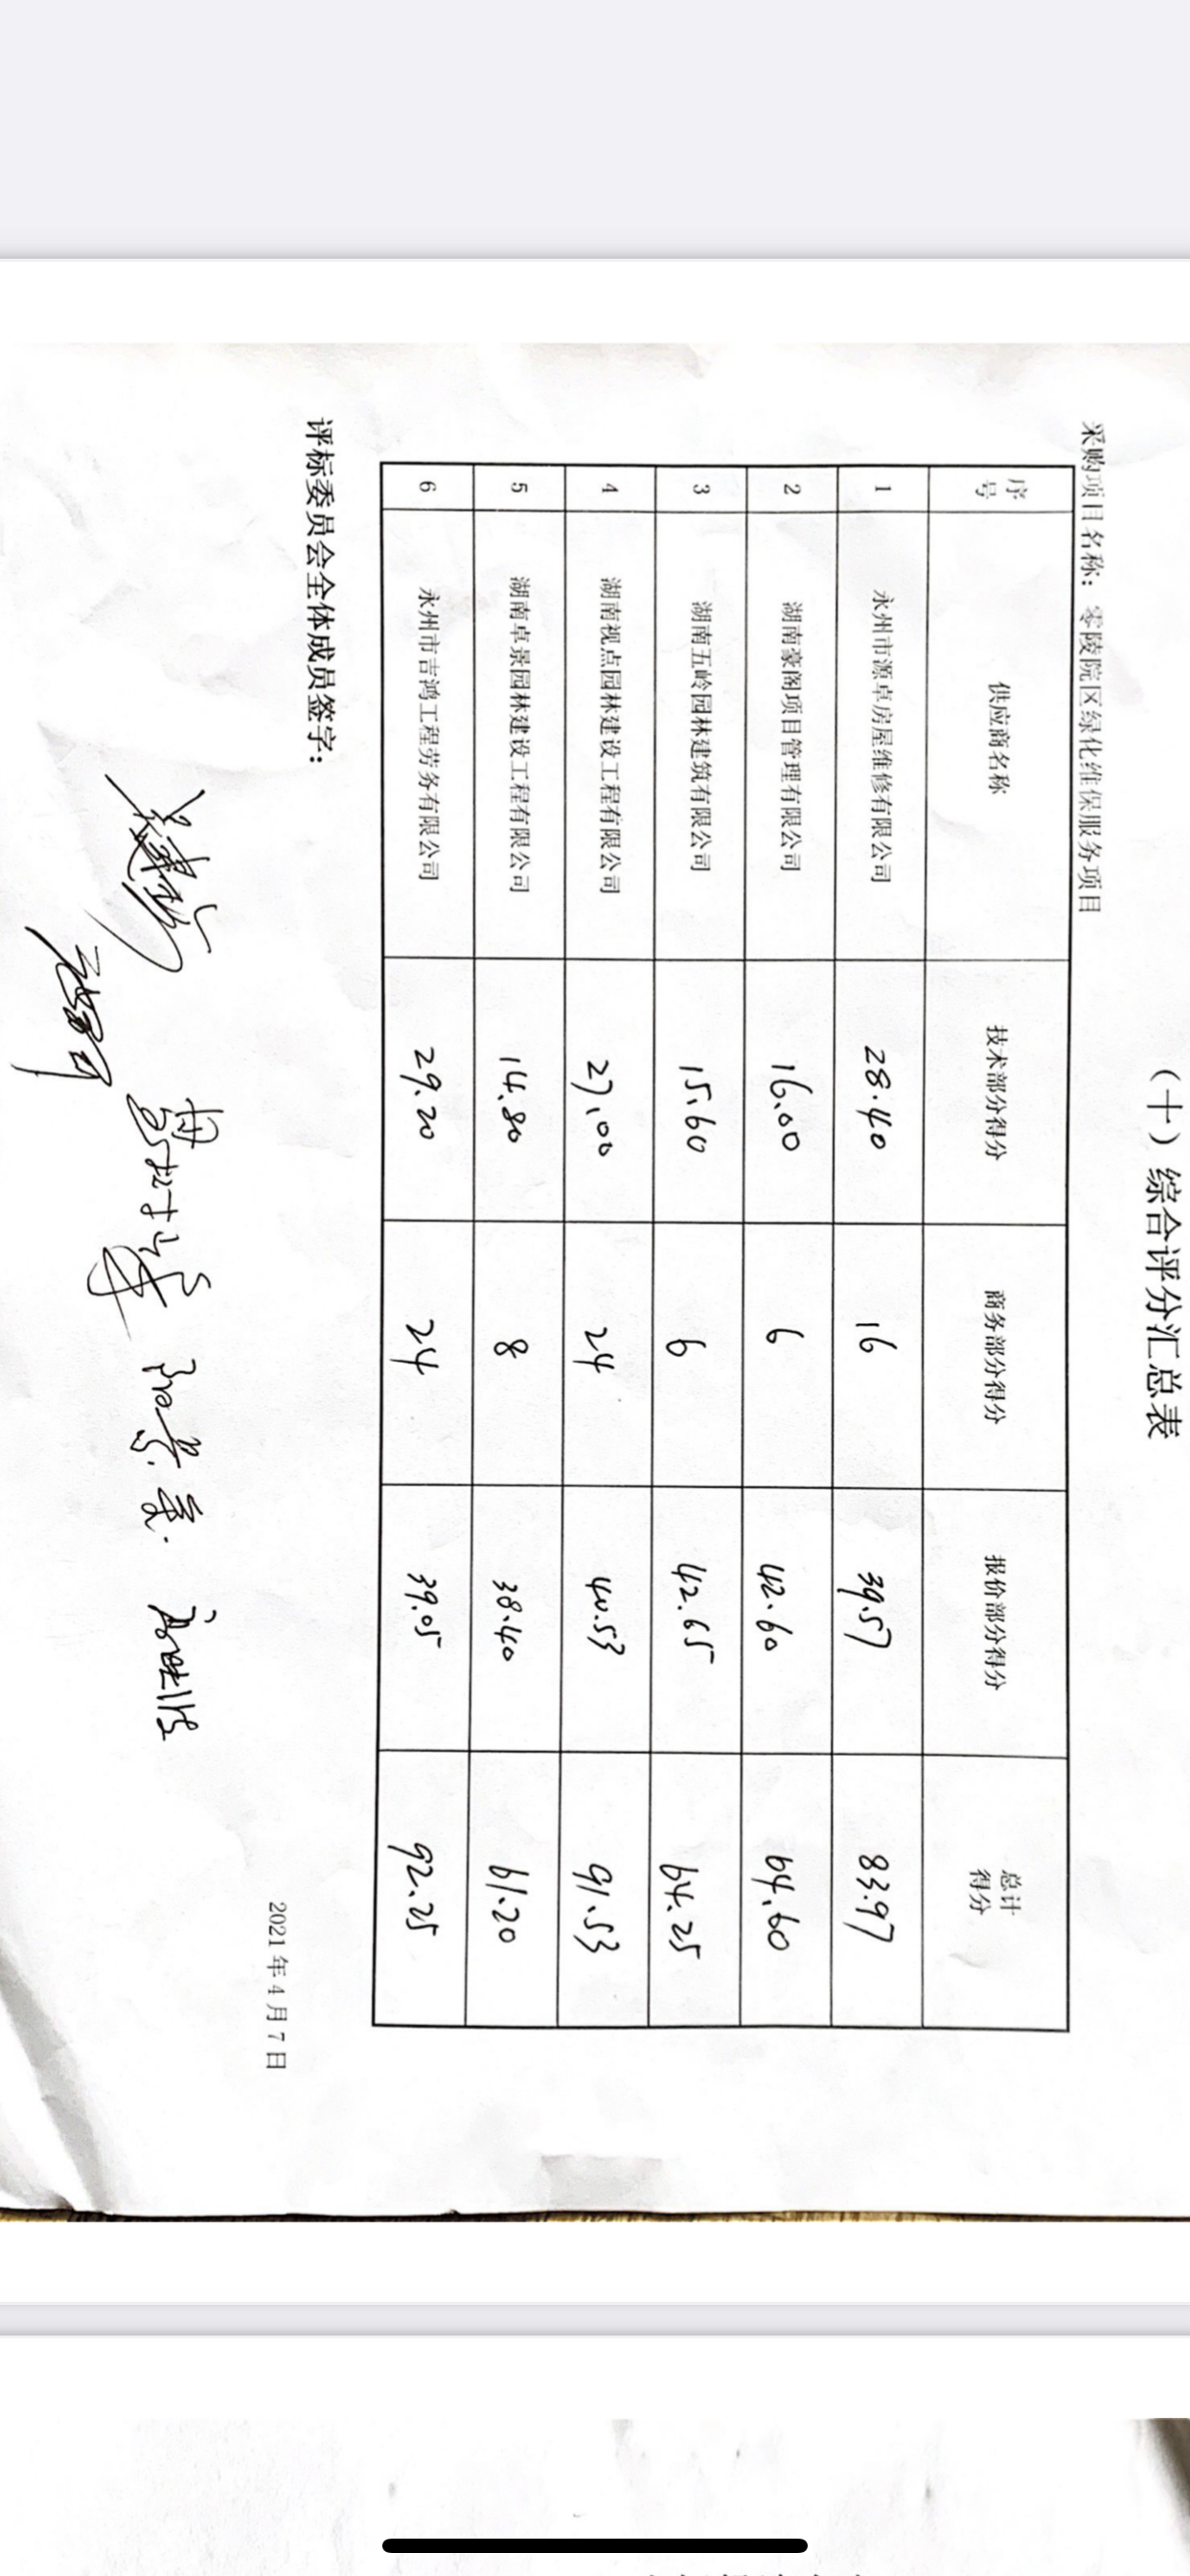 (十)综合评分汇总表
采购项目名称：零陵院区绿化维保服务项目
序号 供应商名称 技术部分得分 商务部分得分 报价部分得分 总计得分
1 永州市源卓房屋维修有限公司 28.40 16 39.57 83.97
2 湖南豪阁项目管理有限公司 16.00 6 42.60 64.60
3 湖南五岭园林建筑有限公司 15.60 6 42.65 64.25
4 湖南视点园林建设工程有限公司 27.00 24 40.53 91.53
5 湖南卓景园林建设工程有限公司 14.80 8 38.40 61.20
6 永州市吉鸿工程劳务有限公司 29.20 24 39.05 92.25
评标委员会全体成员签字：
2021年4月7日